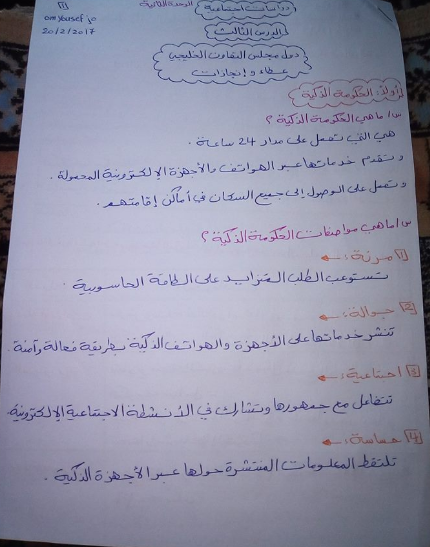 دراسات اجتماعية الوحدة الثانية
[1]
om yousef je
20/2/2017
الدرس الثالث
دول مجلس التعاون الخليجي
عطاء وإنجازات
أولاً: الحكومة الذكية
س/ ما هي الحكومة الذكية ؟
هي التي تعمل على مدار 24 ساعة .
وتقدم خدماتها عبر الهواتف والأجهزة الإلكترونية المحمولة .
وتعمل على الوصول إلى جميع السكان في أماكن إقامتهم .
س/ ما هي مواصفات الحكومة الذكية ؟
[1] مرنة :
تستوعب الطلب المتزايد على الطاقة الحاسوبية .
[2] جوالة :
تنشر خدماتها على الأجهزة والهواتف الذكية بطريقة فعالة وآمنة .
[3] اجتماعية :
تتفاعل مع جمهورها وتشارك في الأنشطة الاجتماعية الإلكترونية .
[4] حساسة :
تلتقط المعلومات المنتشرة حولها عبر الأجهزة الذكية .